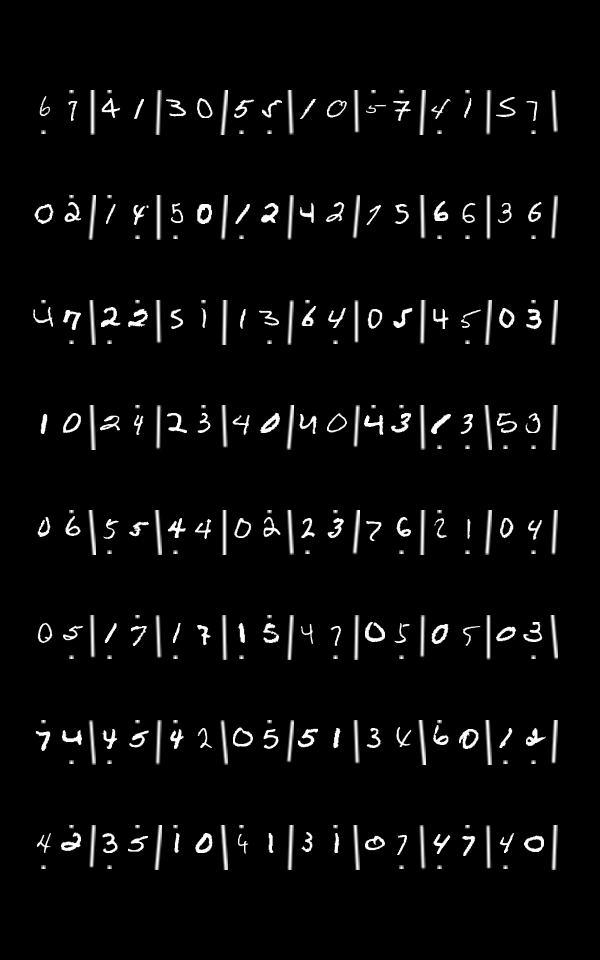 6 7 | 4 1 | 3 0 | 5 5 | 1 0 | 5 7 | 4 1 | 5 7 |
0 2 | 1 4 | 5 0 | 1 2 | 4 2 | 1 5 | 6 6 | 3 6 |
4 7 | 2 2 | 5 1 | 1 3 | 6 4 | 0 5 | 4 5 | 0 3 |
1 0 | 2 4 | 2 3 | 4 0 | 4 0 | 4 3 | 1 3 | 5 3 |
0 6 | 5 5 | 4 4 | 0 2 | 2 3 | 7 6 | 2 1 | 0 4 |
0 5 | 1 7 | 1 7 | 1 5 | 4 7 | 0 5 | 0 5 | 0 3 |
7 4 | 4 5 | 4 2 | 0 5 | 5 1 | 3 4 | 6 0 | 1 2 |
4 2 | 3 5 | 1 0 | 4 1 | 3 1 | 0 7 | 4 7 | 4 0 |